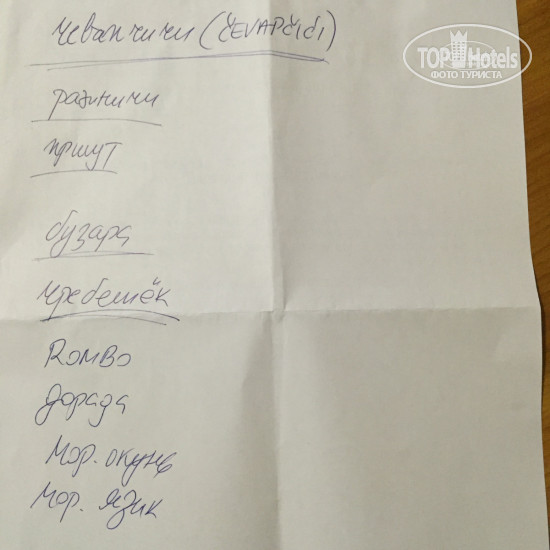 TOP Hotels
ФОТО ТУРИСТА
чевапчичи (ČEVAPČIĆI)
ражничи
пршут
бузара
гребешёк
ROMBO
Дорада
Мор. окунь
Мор. язик